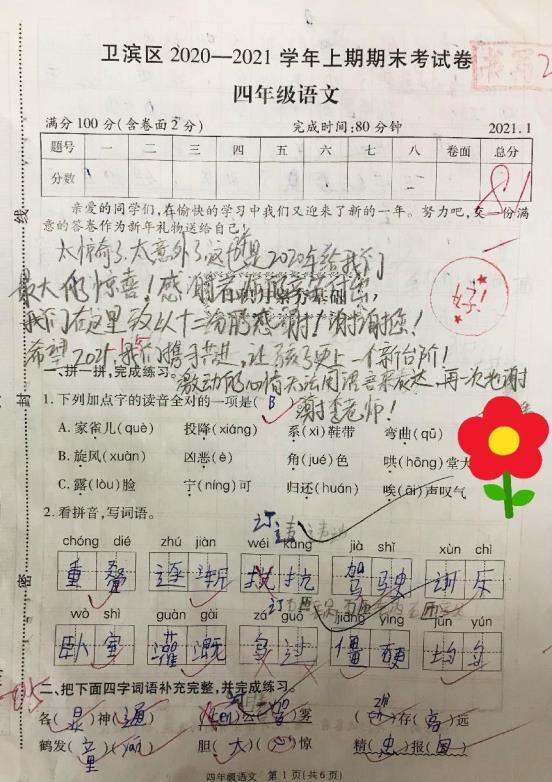 卫滨区 2020—2021 学年上期期末考试卷
书写 2
四年级语文
满分 100 分(含卷面 2 分) 完成时间:80 分钟 2021.1
题号 一 二 三 四 五 六 七 八 卷面 总分
分数 81
亲爱的同学们,在愉快的学习中我们又迎来了新的一年。努力吧,交一份满
意的答卷作为新年礼物送给自己
太惊奇了,太意外了,这 是2020年给我们
最大的惊喜!感谢老师的
我们在这里致以十二分的感谢!谢谢您!
好!
希望2021我们携手共进,让孩子更上一个新台阶!
激动的心情无法用语言来表达,再一次地谢
谢李老师!
一、拼一拼,完成练习。
1. 下列加点字的读音全对的一项是( B )
A. 家雀儿(què) 投降(xiáng) 系(xì)鞋带 弯曲(qū)
B. 旋风(xuàn) 凶恶(è) 角(jué)色 哄(hōng)堂大
C. 露(lòu)脸 宁(níng)可 归还(huán) 唉(āi)声叹气
2. 看拼音,写词语。
chóng dié zhú jiàn wéi kàng jià shǐ xùn chì
重叠 逐渐 抗 驾驶 训斥
wò shì guàn gài zá guō jiāng yìng jūn yún
卧室 灌溉 过 僵硬 均匀
二、把下面四字词语补充完整,并完成练习。
各( 显 )神( 通 ) 雾 存( 高 )远
鹤发( 童 ) 胆( 大 )( 心 )惊 精( 忠 )报( 国 )
四年级语文 第 1 页(共 6 页)
线
封
密